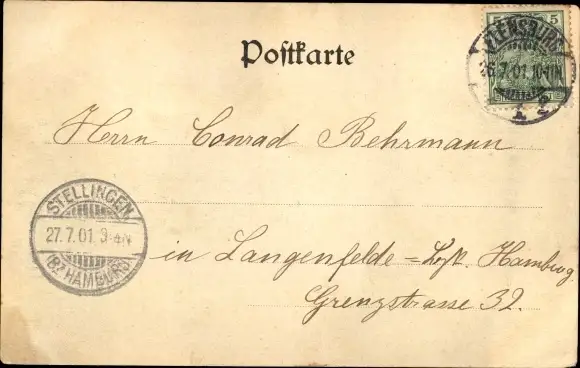 5 5
FLENSBURG
26.7.01. 10-11N
1 c
Postkarte
Herrn Conrad Behrmann
STELLINGEN
27.7.01 3-4N
(BZ HAMBURG)
in Langenfelde = Hamburg
Grenzstrasse 32.